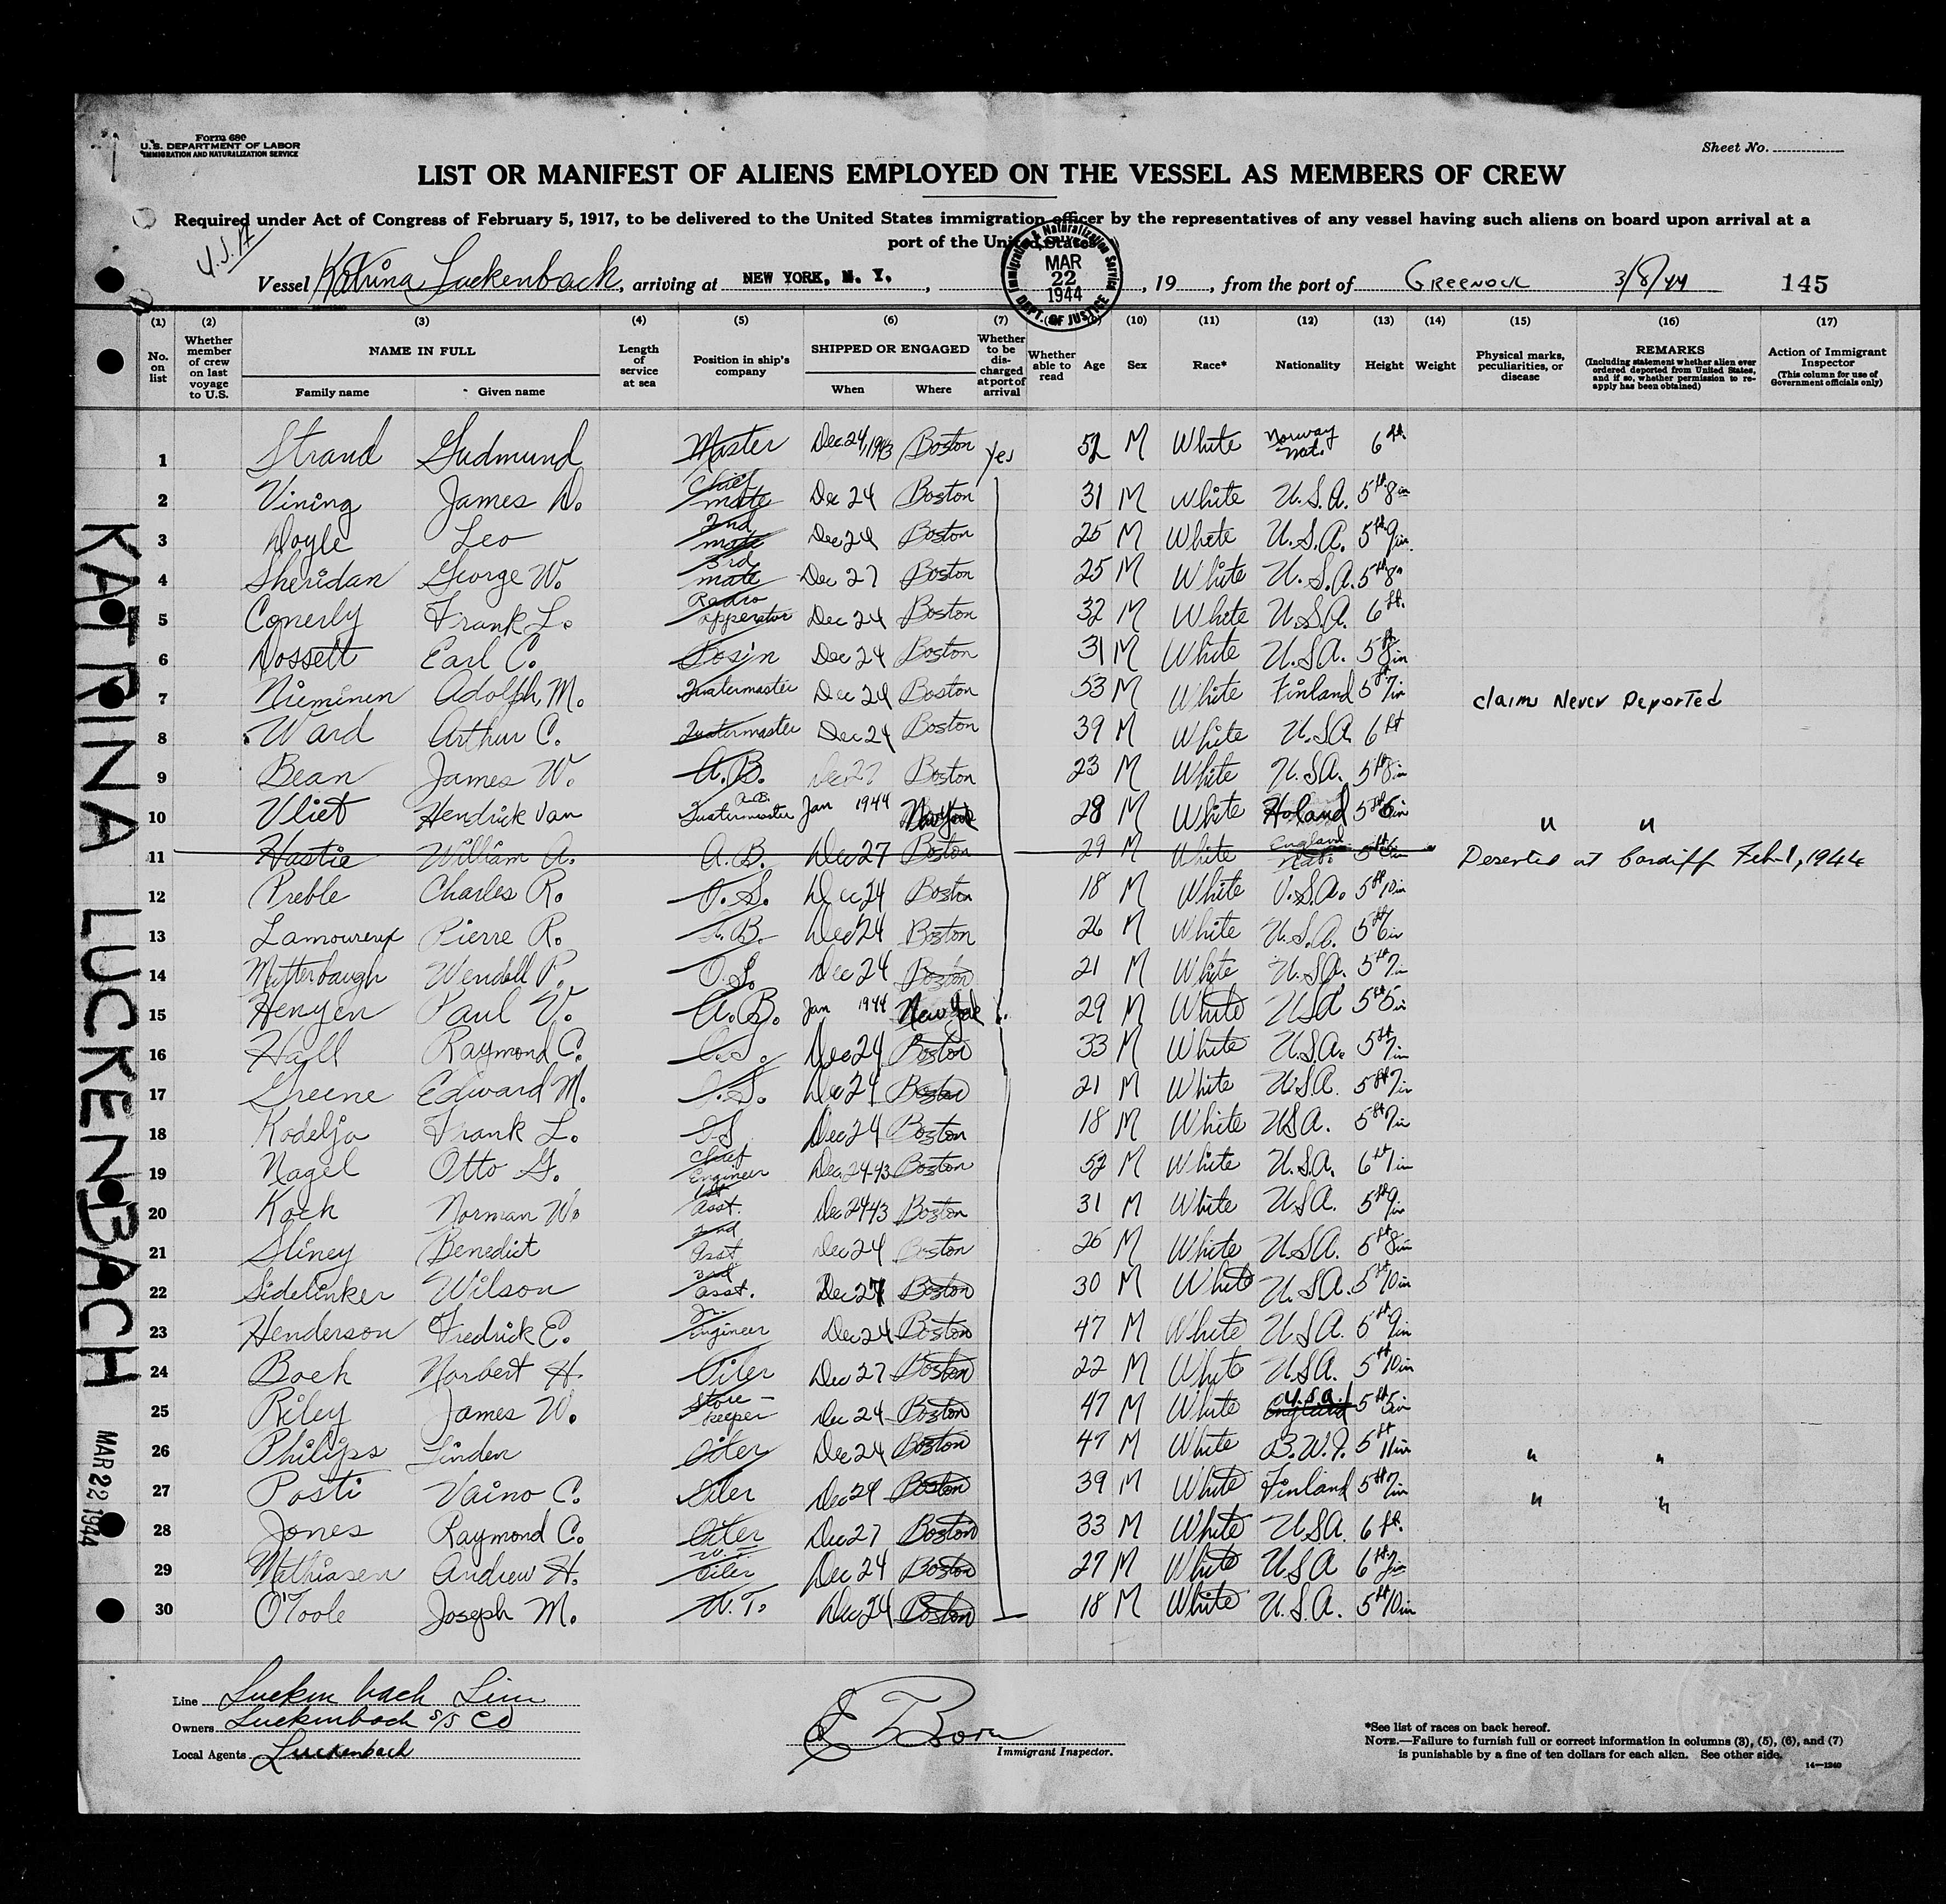 Form 680
U.S. DEPARTMENT OF LABOR
IMMIGRATION AND NATURALIZATION SERVICE
Sheet No.
LIST OR MANIFEST OF ALIENS EMPLOYED ON THE VESSEL AS MEMBERS OF CREW
Required under Act of Congress of February 5, 1917, to be delivered to the United States immigration officer by the representatives of any vessel having such aliens on board upon arrival at a
port of the United States
U.S.A
Immigration & Naturalization Service MAR 22 1944 DEPT. OF JUSTICE
Vessel Katrina Luckenback, arriving at NEW YORK, N. Y., , 19 , from the port of GREENOCK 3/8/44 145
(1) (2) (3) (4) (5) (6) (7) (9) (10) (11) (12) (13) (14) (15) (16) (17)
No. on list
Whether member of crew on last voyage to U.S.
NAME IN FULL
Family name Given name
Length of service at sea
Position in ship's company
SHIPPED OR ENGAGED
When Where
Whether to be discharged at port of arrival
Whether able to read
Age Sex Race* Nationality Height Weight
Physical marks, peculiarities, or disease
REMARKS
(Including statement whether alien ever ordered deported from United States, and if so, whether permission to reapply has been obtained)
Action of Immigrant Inspector
(This column for use of Government officials only)
1 Strand Gudmund Master Dec 24, 1943 Boston Yes 52 M White Norway Nat. 6 ft.
2 Vining James D. Chief mate Dec 24 Boston 31 M White U.S.A. 5 ft 8 in
3 Doyle Leo 2nd mate Dec 24 Boston 25 M White U.S.A. 5 ft 9 in.
4 Sheridan George W. 3rd mate Dec 27 Boston 25 M White U.S.A. 5 ft 8"
5 Conerly Frank L. Radio opperator Dec 24 Boston 32 M White U.S.A. 6 ft.
6 Dossett Earl C. Bosin Dec 24 Boston 31 M White U.S.A. 5 ft 8 in
7 Nieminen Adolph, M. Quatermaster Dec 24 Boston 53 M White Finland 5 ft 7 in claims Never Deported
8 Ward Arthur C. Quatermaster Dec 24 Boston 39 M White U.S.A. 6 ft
9 Bean James W. A.B. Dec 27 Boston 23 M White U.S.A. 5 ft 8 in
10 Vliet Hendrick van A.B. Quatermaster Jan 1944 New York 28 M White Holand 5 ft 6 in " "
11 Hastie William A. A.B. Dec 27 Boston 29 M White England Nat. 5 ft 6 in Deserted at Cardiff Feb 1, 1944
12 Preble Charles R. O.S. Dec 24 Boston 18 M White U.S.A. 5 ft 10 in
13 Lamoureux Pierre R. A.B. Dec 24 Boston 26 M White U.S.A. 5 ft 6 in
14 Mutterbaugh Wendell P. O.S. Dec 24 Boston 21 M White U.S.A. 5 ft 7 in
15 Henyen Paul V. A.B. Jan 1944 New York 29 M White USA 5 ft 5 in
16 Hall Raymond C. O.S. Dec 24 Boston 33 M White U.S.A. 5 ft 7 in
17 Greene Edward M. O.S. Dec 24 Boston 21 M White U.S.A. 5 ft 7 in
18 Kodelja Frank L. O.S. Dec 24 Boston 18 M White USA. 5 ft 7 in
19 Nagel Otto G. Chief Engineer Dec. 24-43 Boston 52 M White U.S.A. 6 ft 1 in
20 Koch Norman W. 1st asst. Dec 24 43 Boston 31 M White USA. 5 ft 9 in
21 Sliney Benedict 2nd asst Dec 24 Boston 26 M White USA. 5 ft 8 in
22 Sidelinker Wilson 3rd asst. Dec 27 Boston 30 M White U.S.A. 5 ft 10 in
23 Henderson Fredrick E. Jr. Engineer Dec 24 Boston 47 M White U.S.A. 5 ft 9 in
24 Boeh Norbert H. Oiler Dec 27 Boston 22 M White USA. 5 ft 10 in
25 Riley James W. Store-keeper Dec 24 Boston 47 M White England U.S.A. 5 ft 5 in
26 Philips Linden Oiler Dec 24 Boston 47 M White B.W.I. 5 ft 11 in " "
27 Posti Vaino C. Oiler Dec 24 Boston 39 M White Finland 5 ft 7 in " "
28 Jones Raymond C. Oiler Dec 27 Boston 33 M White USA. 6 ft.
29 Mathiasen Andrew H. Oiler Dec 24 Boston 27 M White USA 6 ft 2 in
30 O'Toole Joseph M. W.T. Dec 24 Boston 18 M White U.S.A. 5 ft 10 in
KATRINA LUCKENBACH MAR 22 1944
Line Luckenbach Line
Owners Luckenbach S/S CO
Local Agents Luckenbach
E Born
Immigrant Inspector.
*See list of races on back hereof.
NOTE.—Failure to furnish full or correct information in columns (3), (5), (6), and (7)
is punishable by a fine of ten dollars for each alien. See other side.
14—1240